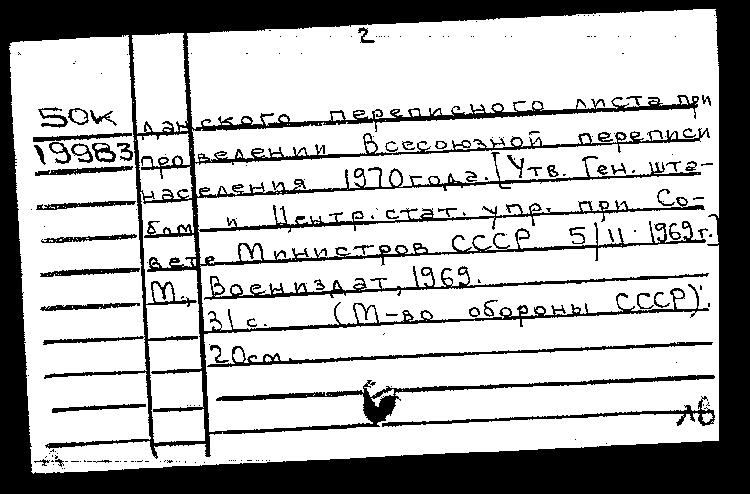 2
50к
19983
данского переписного листа при
проведении Всесоюзной переписи
населения 1970 года. [Утв. Ген. шта-
бом и Центр. стат. упр. при Со-
вете Министров СССР 5/II 1969 г.]
М., Воениздат, 1969.
31 с. (М-во обороны СССР).
20 см.
1б